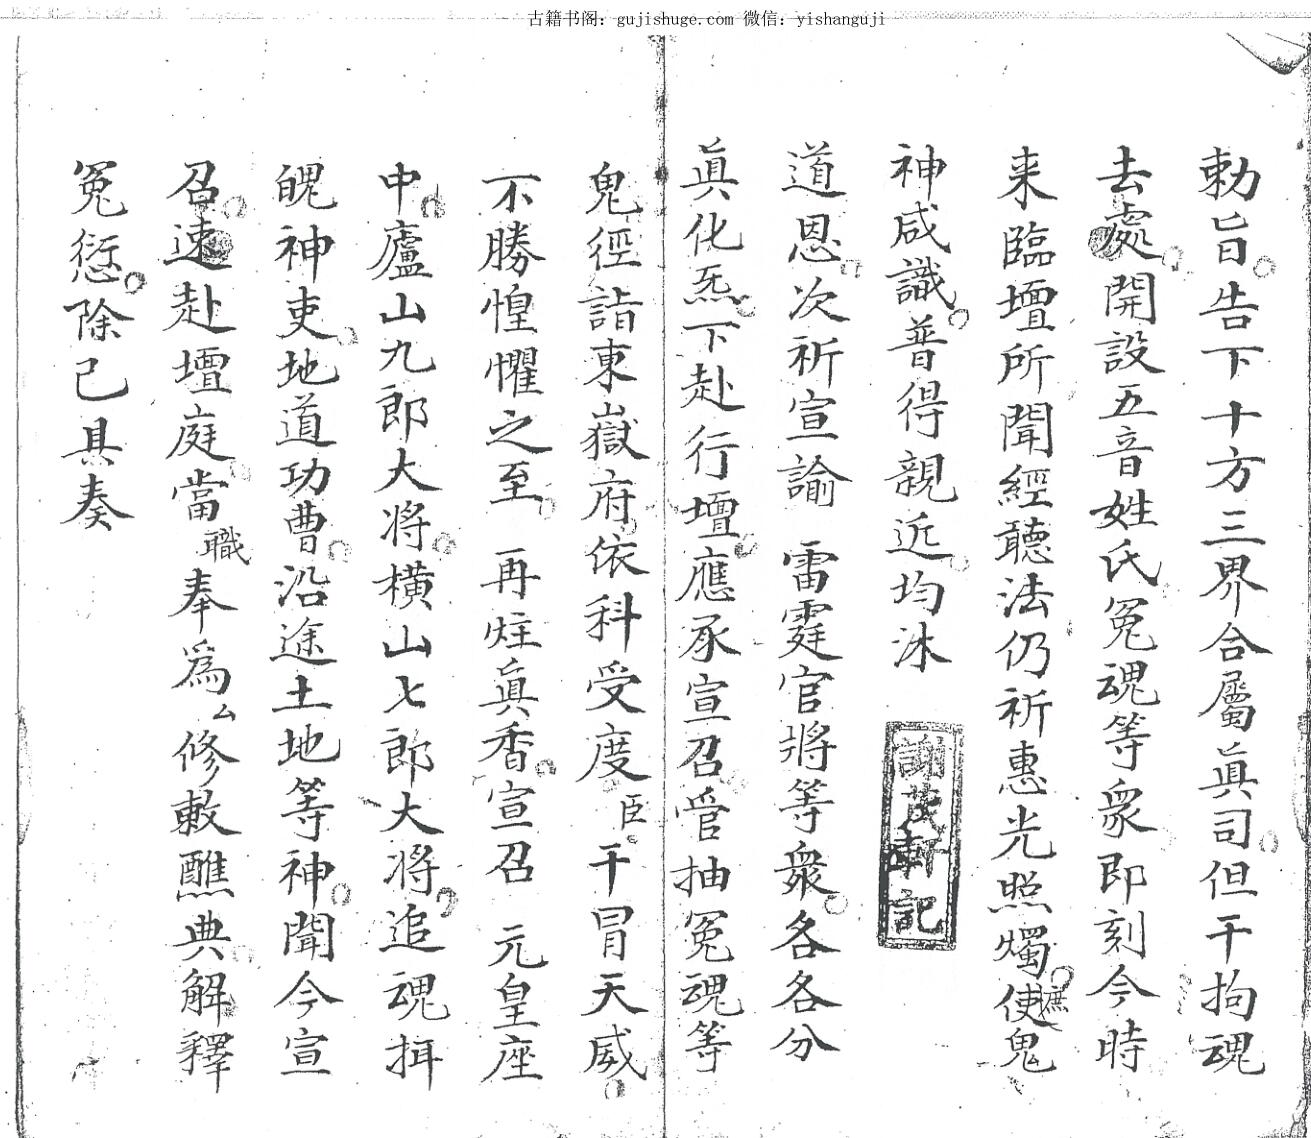 古籍书阁：gujishuge.com 微信：yishanguji
勅旨告下十方三界合屬眞司但干拘魂
去處開設五音姓氏冤魂等衆即刻今時
来臨壇所聞經聽法仍祈惠光照燭使庶鬼
神咸識普得親近均沐
謝茂軒記
道恩次祈宣諭 雷霆官將等衆各各分
眞化炁下赴行壇應承宣召管抽冤魂等
鬼徑詣東嶽府依科受度臣干冒天威
不勝惶懼之至 再炷眞香宣召 元皇座
中廬山九郎大将横山七郎大将追魂揖
魄神吏地道功曹沿途土地等神聞今宣
召速赴壇庭當職奉爲厶修敕醮典解釋
冤愆除已具奏